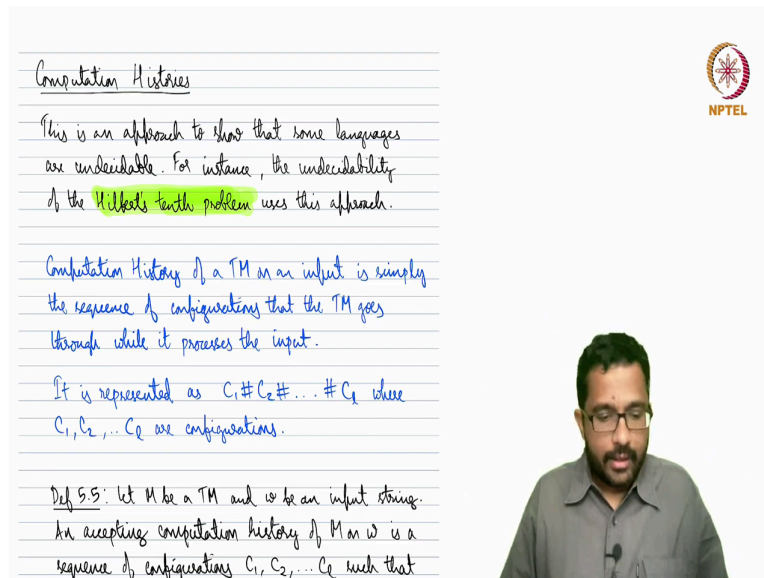 Computation Histories
NPTEL
This is an approach to show that some languages
are undecidable. For instance, the undecidability
of the Hilbert's tenth problem uses this approach.
Computation History of a TM on an input is simply
the sequence of configurations that the TM goes
through while it processes the input.
It is represented as C₁ # C₂ # ... # Cℓ where
C₁, C₂, .. Cℓ are configurations.
Def 5.5: Let M be a TM and w be an input string.
An accepting computation history of M on w is a
sequence of configurations C₁, C₂, ... Cℓ such that